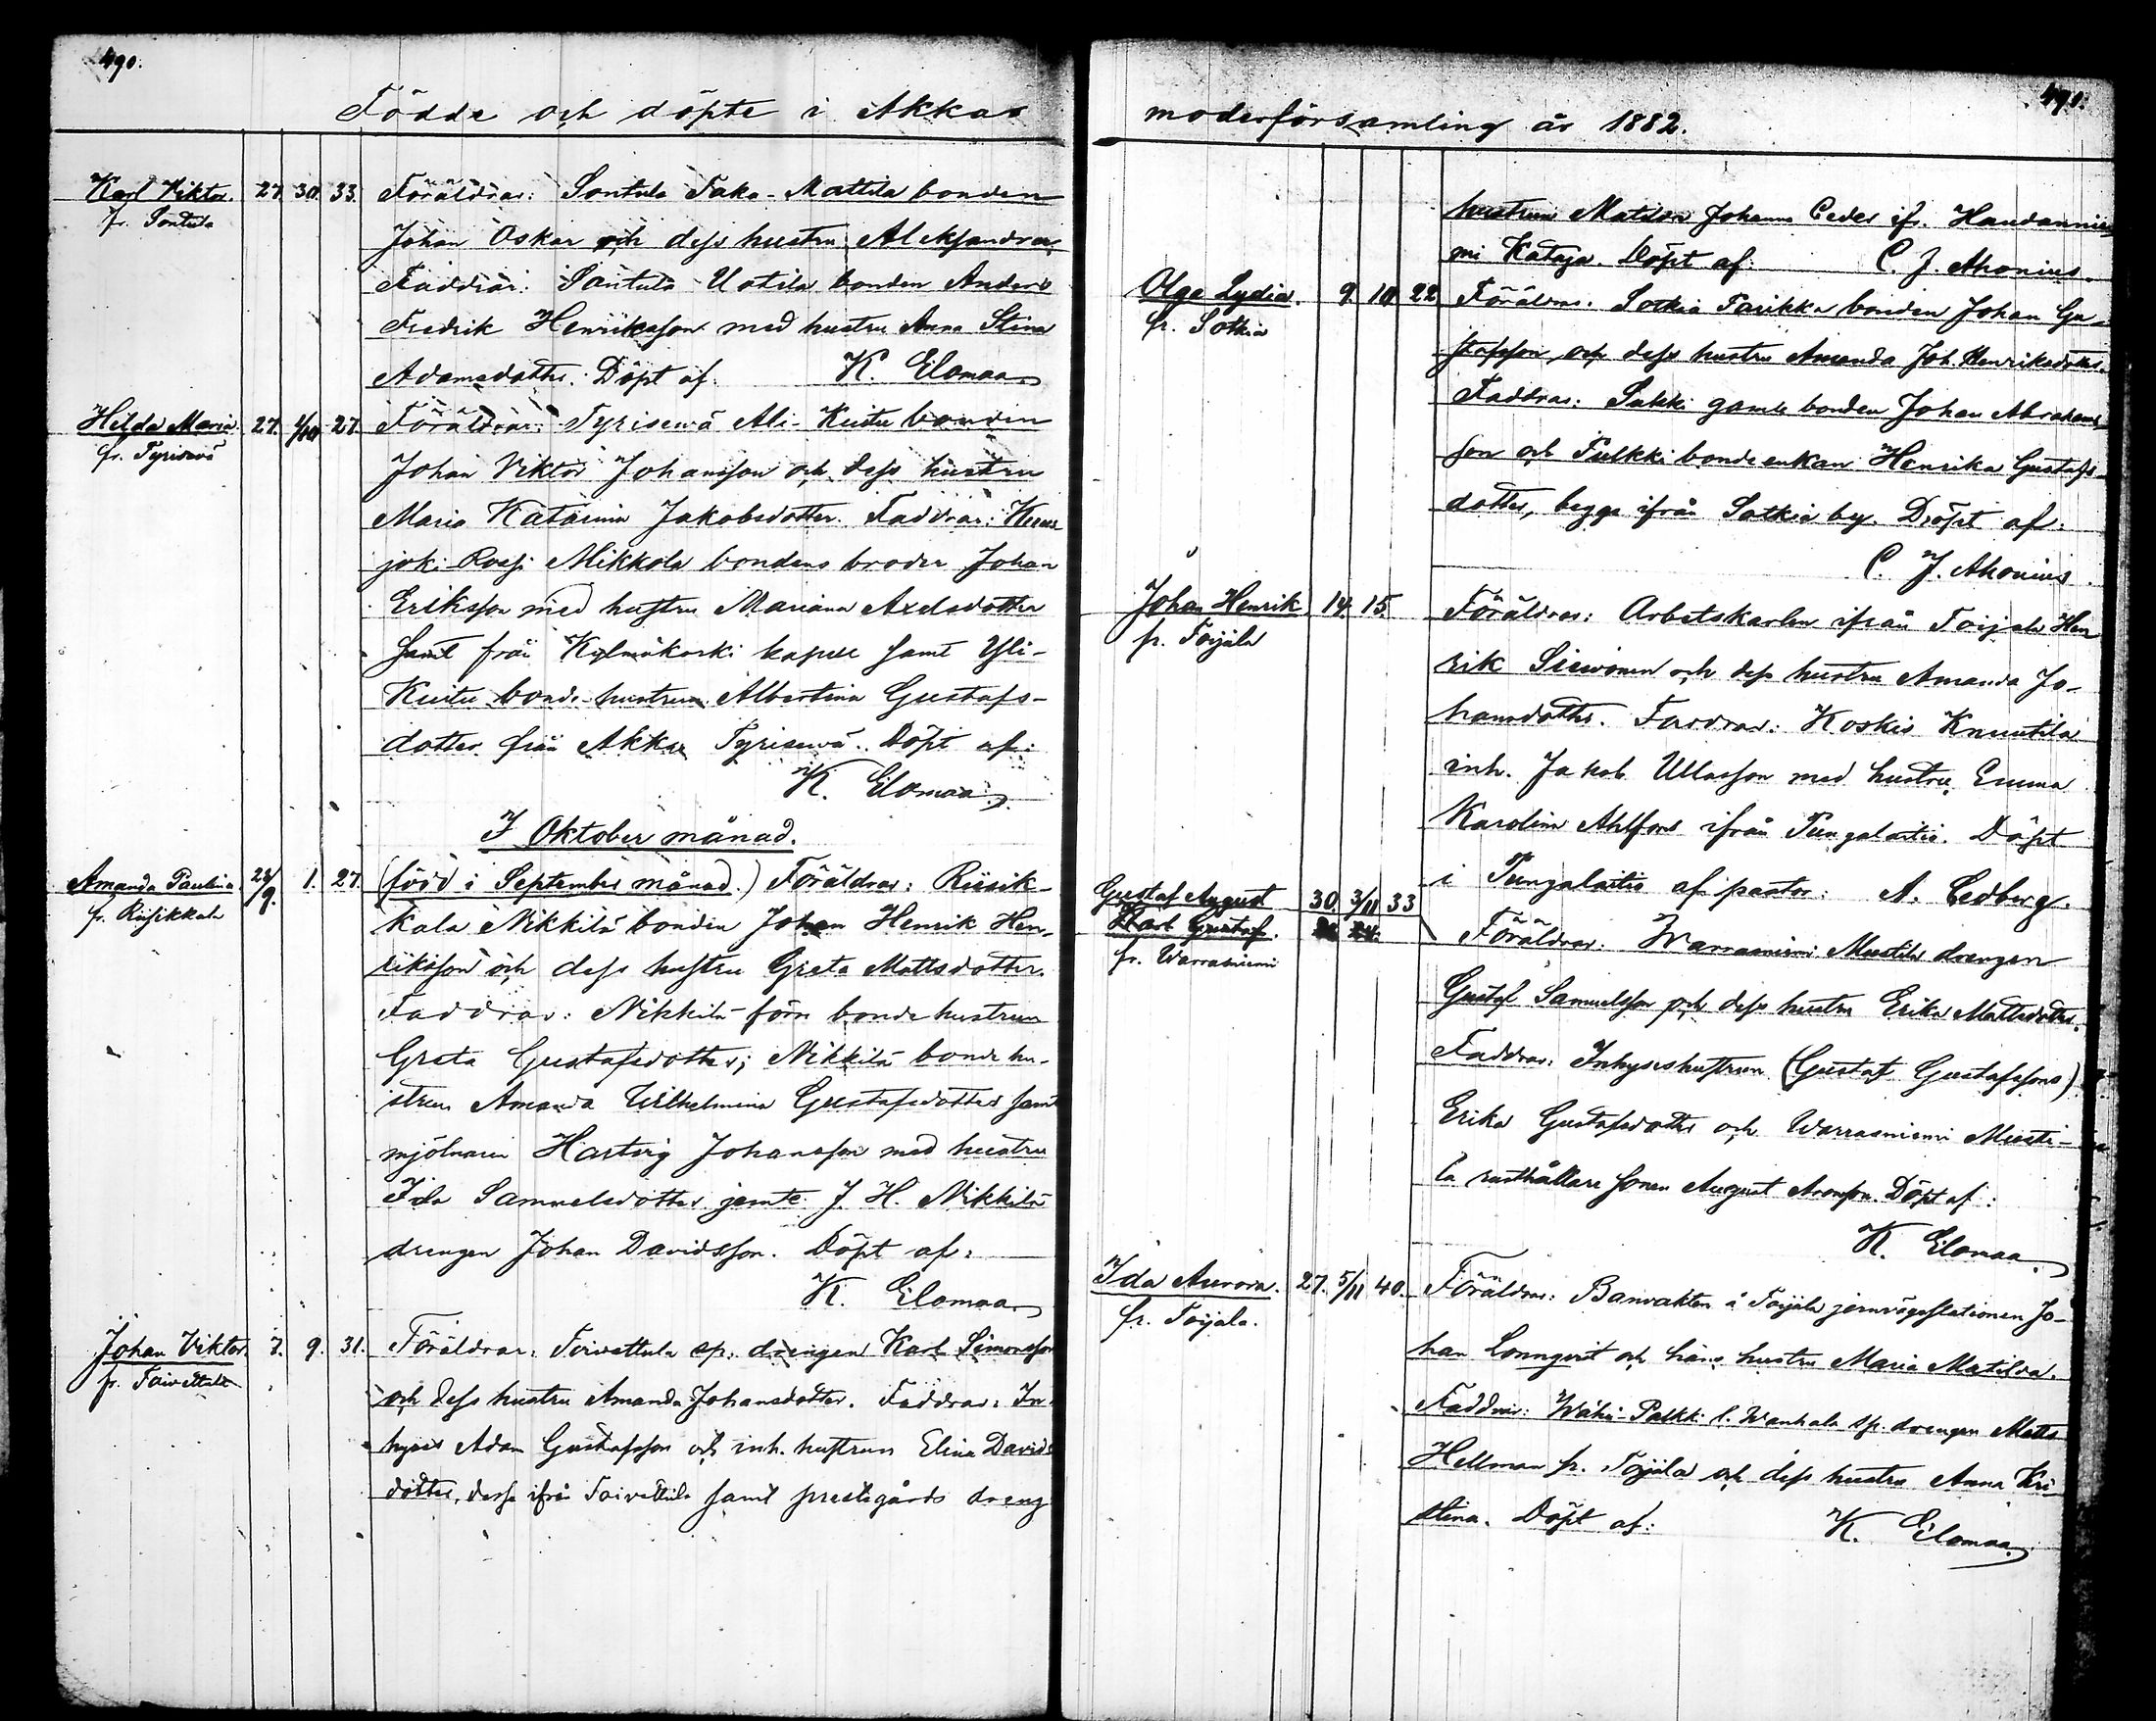 490.
Födde och döpte i Akkas
Karl Viktor. 27. 30. 33. Föräldrar: Sontula Taka-Mattila bonden
fr. Sontula
Johan Oskar och dess hustru Aleksandra.
Faddrar: Sontula Uotila bonden Anders
Fredrik Henriksson med hustru Anna Stina
Adamsdotter. Döpt af: K. Elomaa
Hilda Maria. 27. 1/10 27. Föräldrar: Tyrisevä Ali-Kuitu bonden
fr. Tyrisevä
Johan Viktor Johansson och dess hustru
Maria Katarina Jakobsdotter. Faddrar:
joki Mikkola bondens broder Johan
Eriksson med hustru Mariana Axelsdotter
samt från Kylmäkoski kapell samt Yli-
Kuitu bonde-hustrun Albertina Gustafs-
dotter från Akkas Tyrisevä. Döpt af:
K. Elomaa
I Oktober månad.
Amanda Paulina. 28/9. 1. 27. (född i September månad.) Föräldrar: Riisik-
fr. Riisikkala
kala Nikkilä bonden Johan Henrik Hen-
riksson och dess hustru Greta Mattsdotter.
Faddrar: Nikkilä förra bondehustrun
Greta Gustafsdotter; Nikkilä bondehu-
strun Amanda Wilhelmina Gustafsdotter samt
mjölnaren Hartvig Johansson med hustru
Ida Samuelsdotter jemte J. H. Nikkilä
drengen Johan Davidsson. Döpt af:
K. Elomaa
Johan Viktor. 7. 9. 31. Föräldrar: Toivettula sp. drengen Karl Simonsson
fr. Toivettula
och dess hustru Amanda Johansdotter. Faddrar: In-
hyses Adam Gustafsson och inh. hustrun Elina Davids
dotter, desse ifrån Toivettula samt prestgårds dreng
491.
moderförsamling år 1882.
hustrun Johanna Ceder ifr.
mi Kataja. Döpt af: C. J. Ahonius.
Olga Lydia. 9. 10. 22 Föräldrar: Sotkia Parikka bonden Johan Gu-
fr. Sotkia
stafsson och dess hustru Amanda Joh. Henriksdotter.
Faddrar: gamle bonden Johan Abrahams-
son och Pulkki bondeenkan Henrika Gustafs-
dotter, begge ifrån Sotkia by. Döpt af:
C. J. Ahonius
Johan Henrik 14. 15. Föräldrar: Arbetskarlen ifrån Toijala Hen
fr. Toijala
rik Siivonen och dess hustru Amanda Jo-
hansdotter. Faddrar: Koskis Knuutila
inh. Jakob Ullasson med hustru Emma
Karolina Ahlfors ifrån Pungalaitio. Döpt
i Pungalaitio af pastor: A. Cedberg.
Gustaf August 30. 3/11 33
Karl Gustaf. 24. Föräldrar: Warrasniemi Mustila drengen
fr. Warrasniemi
Gustaf Samuelsson och dess hustru Erika Mattsdotter.
Faddrar: Inhyseshustrun (Gustaf Gustafssons)
Erika Gustafsdotter och Warrasniemi Musti-
la rusthållare sonen August Aronsson. Döpt af:
K. Elomaa
Ida Aurora. 27. 5/11 40. Föräldrar: Banvakten å Toijala jernvägsstationen Jo-
fr. Toijala.
han Lönnqvist och hans hustru Maria Matilda.
Faddrar: Wähä-Pälkki l. Wanhala sp. drengen Matts
Hellman fr. Toijala och dess hustru Anna Kri-
stina. Döpt af: K. Elomaa